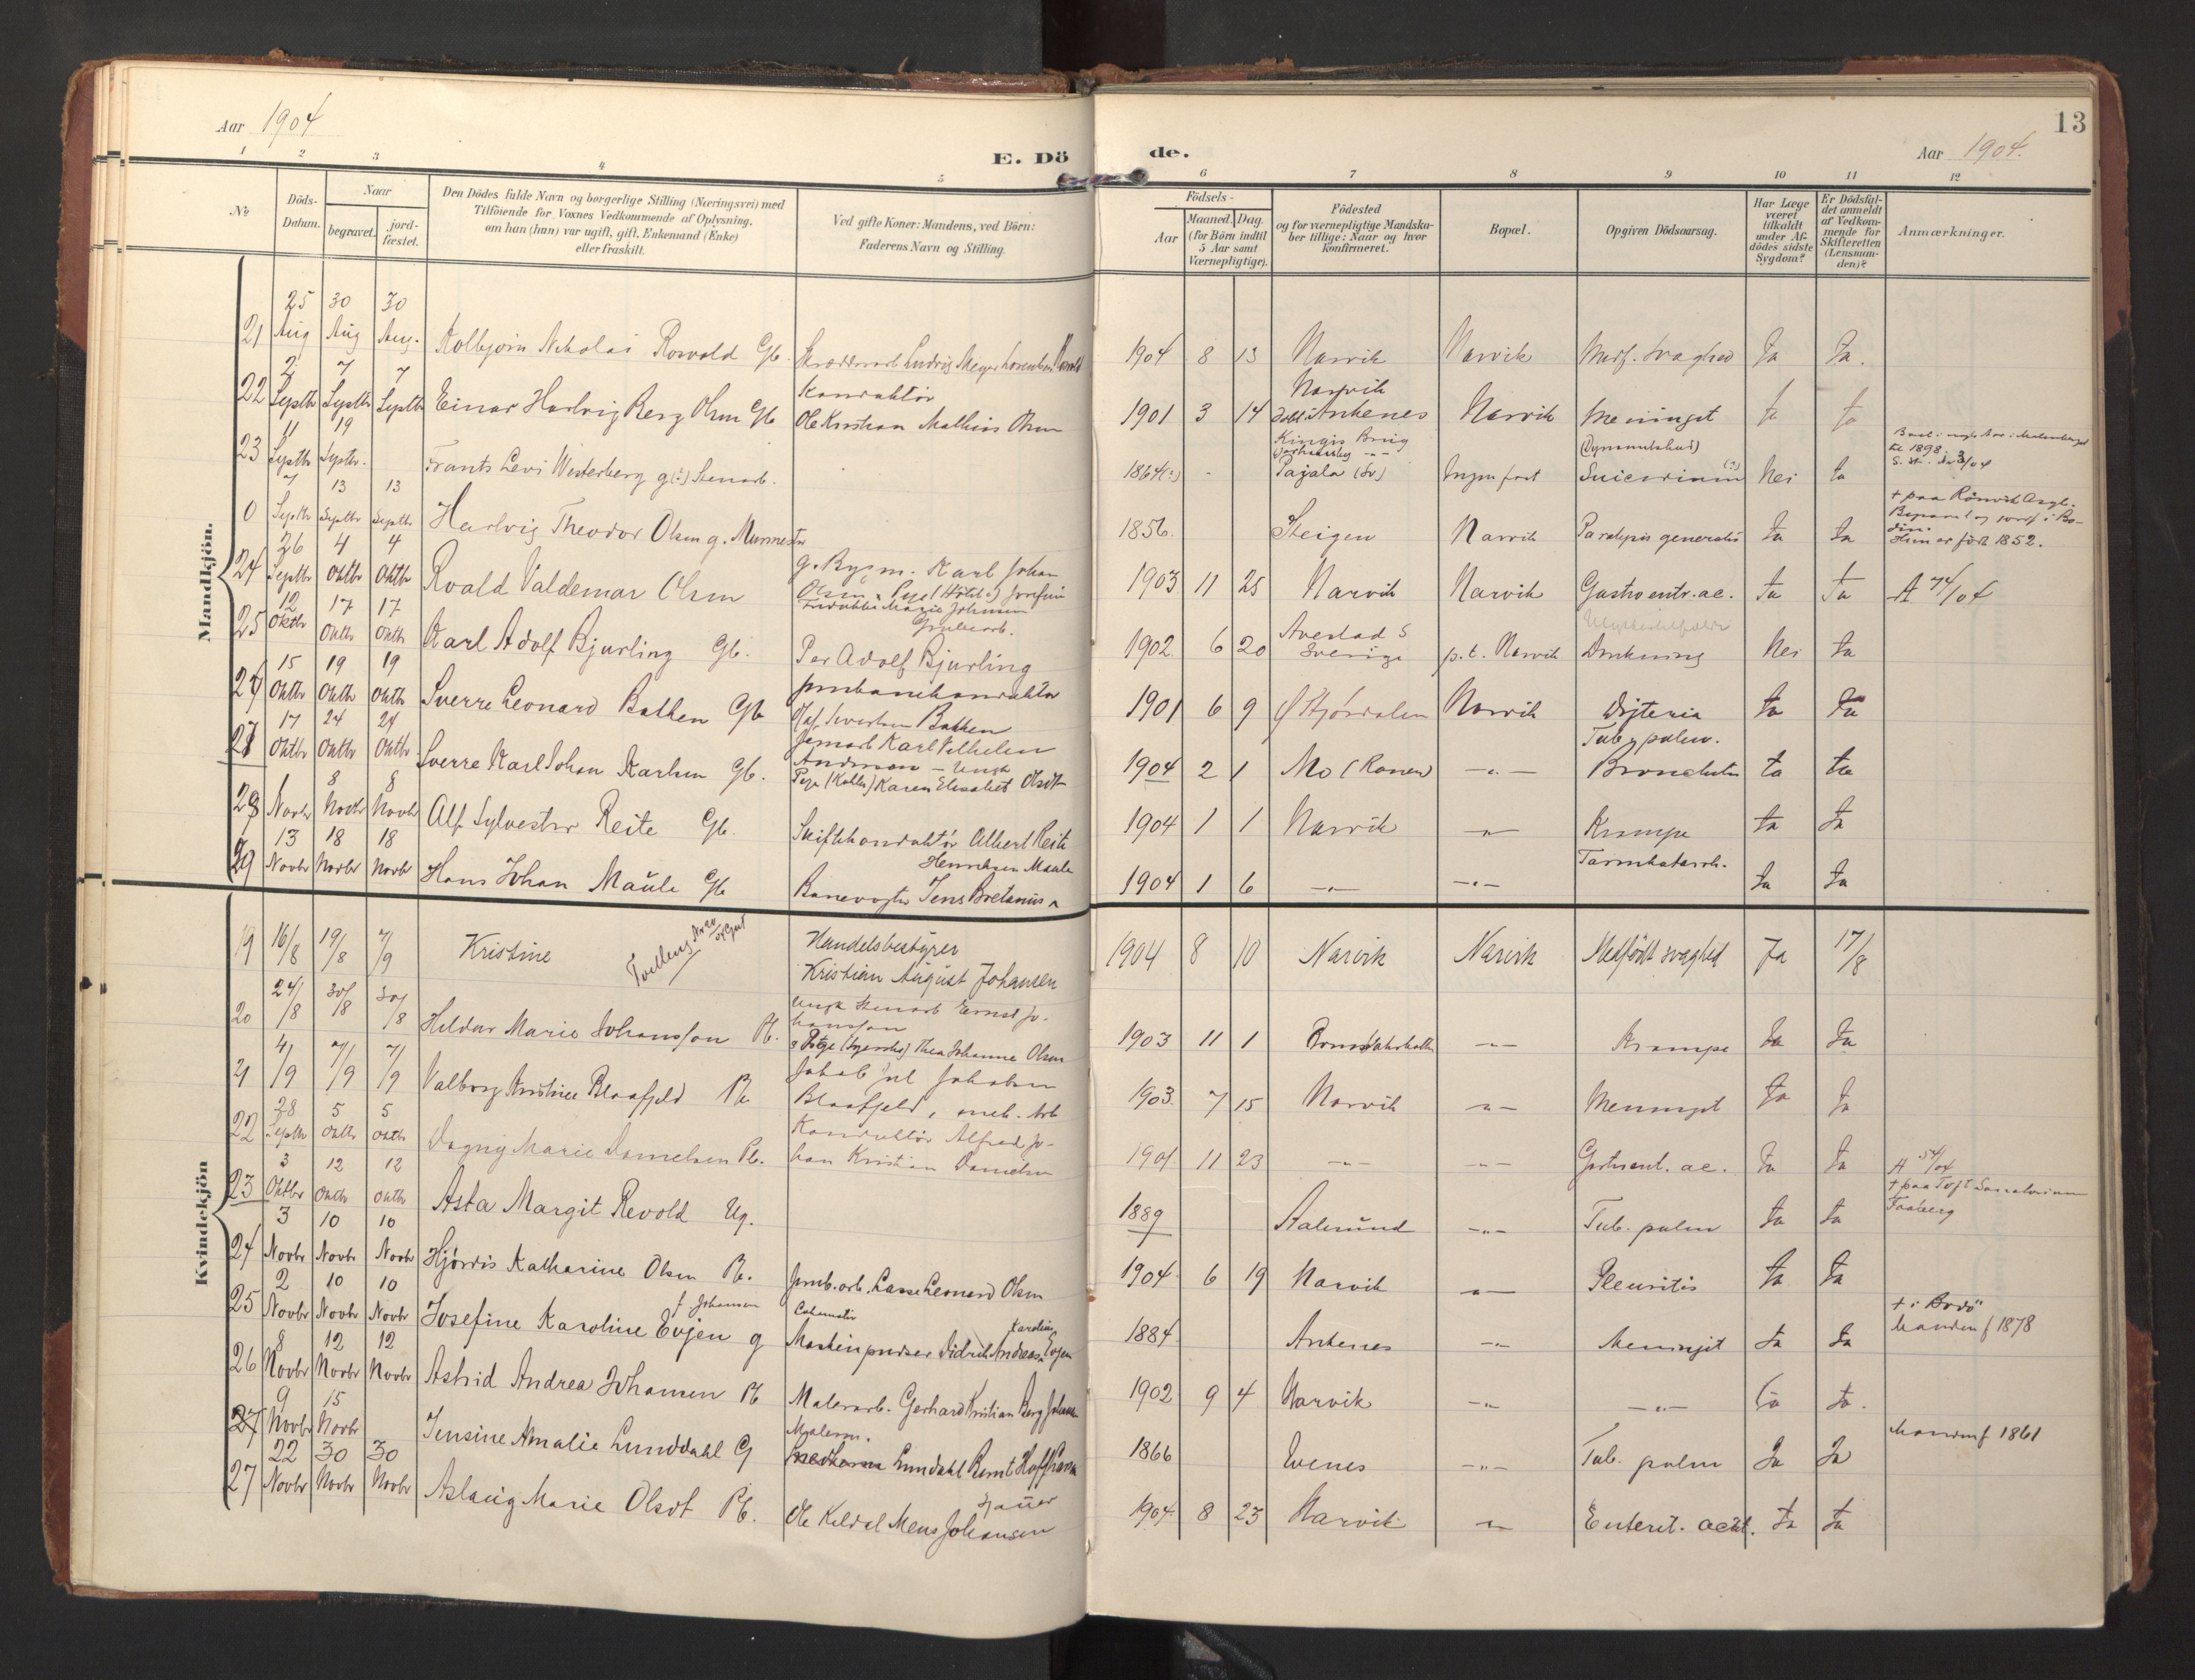 Aar 1904
E. Dö
de.
Aar 1904.
13
1 2 3 4 5
6 7 8 9 10 11 12
No
Döds-
Datum.
Naar
begravet.
jord-
fæstet.
Den Dödes fulde Navn og borgerlige Stilling (Næringsvei) med
Tilföiende for Voxnes Vedkommende af Oplysning,
om han (hun) var ugift, gift, Enkemand (Enke)
eller fraskilt.
Ved gifte Koner: Mandens, ved Börn:
Faderens Navn og Stilling.
Födsels-
Aar
Maaned. Dag.
(for Börn indtil
5 Aar samt
Værnepligtige).
Födested
og for værnepligtige Mandska-
ber tillige: Naar og hvor
konfirmeret.
Bopæl.
Opgiven Dödsaarsag.
Har Læge
været
tilkaldt
under Af-
dödes sidste
Sygdom?
Er Dödsfal-
det anmeldt
af Vedkom-
mende for
Skifteretten
(Lensman-
den)?
Anmærkninger.
Mandkjön.
25 30 30
21 Aug Aug Aug. Kolbjörn Nikolai Rosvold Gb. 1904 8 13 Narvik Narvik Medf. svaghed Ja Ja.
2 7 7
Konduktör
Narvik
22 Septbr Septbr Septbr Einar Hartvig Berg Olsen Gb Ole Kristian Mathias Olsen 1901 3 14 Ankenes Narvik Meningit Ja Ja
11 19
(Dynamitskud)
23 Septbr Septbr. Frants Levi Westerberg g(?) Stenarb. 1864(?) - Pajala (Sv) Suicidium (?) Nei Ja
til 1898
7 13 13
† paa Rönvik Asyl.
0 Septbr Septbr Septbr Hartvig Theodor Olsen g. Murmester 1856. Steigen Narvik Paralysis generalis Ja Ja
Begravet og jordf i Bo-
din.
Hun er född 1852.
26 4 4
g. Bygm. Karl Johan
24 Septbr Oktbr Oktbr Roald Valdemar Olsen 1903 11 25 Narvik Narvik Gastroentr. ac. Ja Ja
Olsen Pige Josefine
Marie Johnsen
12 17 17
Grubearb.
25 Oktbr Oktbr Oktbr Karl Adolf Bjurling Gb. Per Adolf Bjurling 1902 6 20 Avestad S Sverige p.t. Narvik Drukning Nei Ja
15 19 19
Jernbanekonduktör
Oktbr Oktbr Oktbr Sverre Leonard Bakken Gb 1901 6 9 Narvik Difteria Ja Ja
Bakken
17 24 24
Jernarb Karl Vilhelm
Tub. pulm.
Oktbr Oktbr Oktbr Sverre Karl Johan Karlsen Gb. Andersson - Ungk 1904 2 1 Mo (Ranen) -"- Ja Ja
Pige Karen Elisabet Olsdt
1 8 8
28 Novbr Novbr Novbr Alf Sylvester Reite Gb. Skiftekonduktör Albert Reite 1904 1 1 Narvik -"- Krampe Ja Ja
13 18 18
Henriksen Maule
Tarmkatarrh.
29 Novbr Novbr Novbr Hans Johan Maule Gb Banevogter Jens 1904 1 6 -"- -"- Ja Ja
Kvindekjön
19 16/8 19/8 7/9 Kristine Tvilling Handelsbestyrer 1904 8 10 Narvik Narvik Medfödt svaghed Ja 17/8
Kristian August Johansen
20 24/8 30/8 30/8 Hildur Marie Johansson Pb. Ungk Stenarb Ernst Jo-
hansson
Pige Thea Johanne Olsen 1903 11 1 -"- Krampe Ja Ja
21 4/9 7/9 7/9 Valborg Kristine Blaafjeld Pb Jakob Jul Jakobsen 1903. 7 15 Narvik -"- Meningit Ja Ja
Blaafjeld, Arb
28 5 5
Konduktör Alfred Jo-
22 Septbr Oktbr Oktbr Dagny Marie Danielsen Pb. han Kristian Danielsen 1901 11 23 -"- -"- Gastroent. ac. Ja Ja
3 12 12
† paa Toft Sanatorium
23 Oktbr Oktbr Oktbr Asta Margit Revold Ug. 1889 Aalesund -"- Tub. pulm Ja Ja
Faaberg
3 10 10
24 Novbr Novbr Novbr Hjördis Katharine Olsen Pb. Jernb.arb. Lasse Leonard Olsen 1904 6 19 Narvik -"- Pleuritis Ja Ja
2 10 10
f. Johansen
† i Bodö
25 Novbr Novbr Novbr Josefine Karoline Evjen g Didrik Andreas Evjen 1884. Ankenes -"- Meningit Ja Ja
Manden f 1878
8 12 12
26 Novbr Novbr Novbr Astrid Andrea Johansen Pb Malerarb. Gerhard Kristian Berg Johansen 1902 9 4 Narvik -"- -"- Ja Ja.
9 15
Malerm.
Manden f 1861
27 Novbr Novbr Jensine Amalie Lunddahl G Lundahl Bernt 1866 Evenes -"- Tub. pulm Ja Ja
22 30 30
27 Novbr Novbr Novbr Aslaug Marie Olsdt Pb. Ole Johansen 1904 8 23 Narvik -"- Enterit. acut. Ja Ja